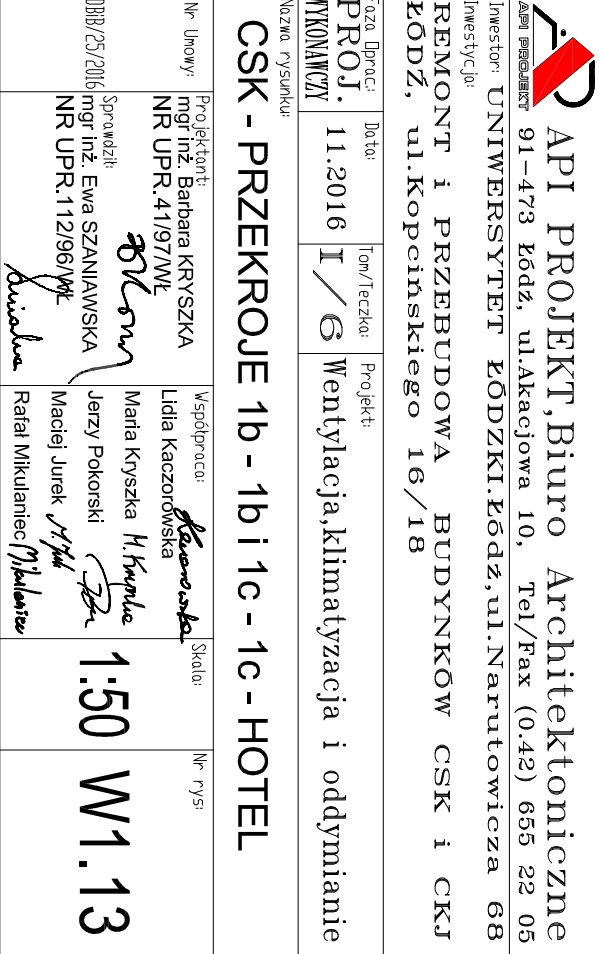 API PROJEKT
API PROJEKT,Biuro Architektoniczne
91-473 Łódź, ul.Akacjowa 10, Tel/Fax (0.42) 655 22 05
Inwestor: UNIWERSYTET ŁÓDZKI.Łódź,ul.Narutowicza 68
Inwestycja:
REMONT i PRZEBUDOWA BUDYNKÓW CSK i CKJ
ŁÓDŹ, ul.Kopcińskiego 16/18
Faza Oprac.:
PROJ.
WYKONAWCZY
Data:
11.2016
Tom/Teczka:
I/6
Projekt:
Wentylacja,klimatyzacja i oddymianie
Nazwa rysunku:
CSK - PRZEKROJE 1b - 1b i 1c - 1c - HOTEL
Nr Umowy:
DBIB/25/2016
Projektant:
mgr inż. Barbara KRYSZKA
NR UPR.41/97/WŁ
Sprawdził:
mgr inż. Ewa SZANIAWSKA
NR UPR.112/96/WŁ
Współpraca:
Lidia Kaczorowska
Maria Kryszka M.Kryszka
Jerzy Pokorski
Maciej Jurek
Rafał Mikulaniec Mikulaniec
Skala:
1:50
Nr rys:
W1.13